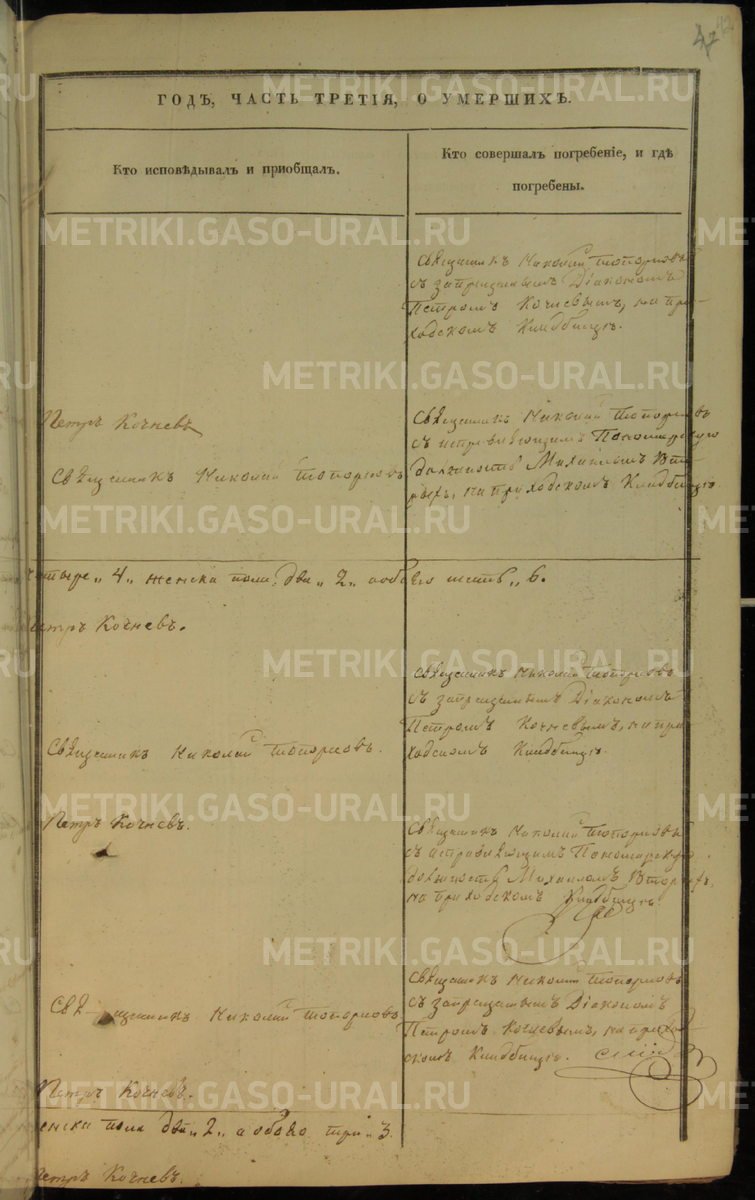 42
ГОДЪ, ЧАСТЬ ТРЕТІЯ, О УМЕРШИХЪ.
Кто исповѣдывалъ и пріобщалъ.
Кто совершалъ погребеніе, и гдѣ
погребены.
Священникъ Николай Топорковъ
съ запрещеннымъ Діакономъ
Петромъ Кочневымъ, на при-
ходскомъ Кладбищѣ.
Петръ Кочневъ
Священникъ Николай Топорковъ
Священникъ Николай Топорковъ
съ исправляющимъ Пономарскую
должность Михаиломъ
на приходскомъ Кладбищѣ
четыре „4„ женска пола два „2„ а обоего шесть „6.
Петръ Кочневъ.
Священникъ Николай Топорковъ.
Священникъ Николай Топорковъ
съ запрещеннымъ Діакономъ
Петромъ Кочневымъ, на при
ходскомъ Кладбищѣ.
Петръ Кочневъ.
Священникъ Николай Топорковъ
съ исправляющимъ Пономарскую
должность Михаиломъ
на приходскомъ Кладбищѣ.
Священникъ Николай Топорковъ
Священникъ Николай Топорковъ
съ запрещеннымъ Діакономъ
Петромъ Кочневымъ, на прихо
скомъ Кладбищѣ.
Петръ Кочневъ.
женска пола два „2„ а обоего три „3
Петръ Кочневъ.
METRIKI.GASO-URAL.RU